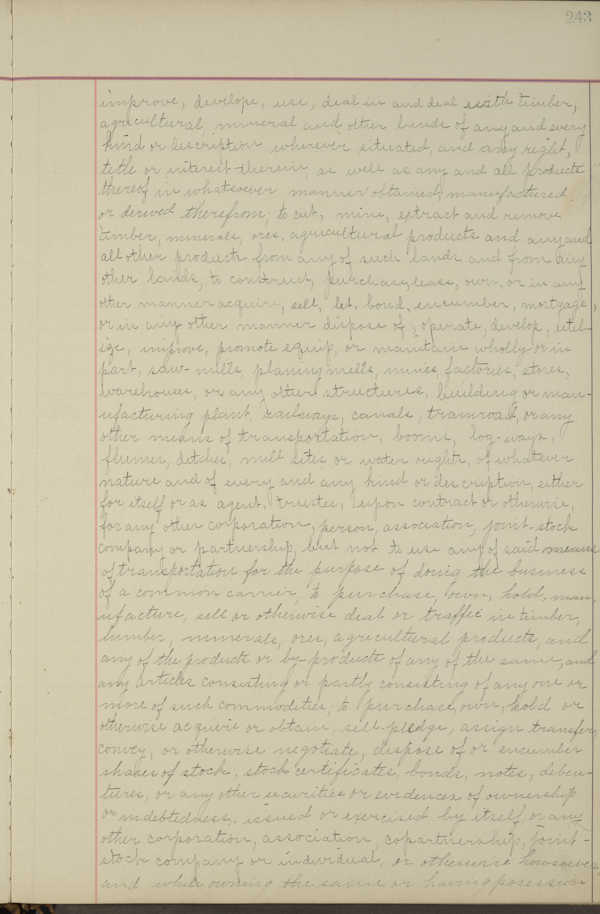 243
improve, develope, use, deal in and deal with timber,
agricultural, mineral and other lands of any and every
kind or description wherever situated, and any right,
title or interest therein, as well as any and all products
thereof in whatsoever manner obtained, manufactured
or derived therefrom; to cut, mine, extract and remove
timber, minerals, ores, agricultural products and any and
all other products from any of such lands and from any
other lands; to construct, purchase, lease, own, or in any
other manner acquire, sell, let, bond, encumber, mortgage,
or in any other manner dispose of, operate, develop, util-
ize, improve, promote equip, or maintain wholly or in
part, saw-mills, planing mills, mines factories, stores,
warehouses, or any other structures, building or man-
ufacturing plant, railways, canals, tramroad, or any
other means of transportation, booms, log-ways,
flumes, ditches, mill sites or water rights, of whatever
nature and of every and any kind or description, either
for itself or as agent, trustee, upon contract or otherwise,
for any other corporation, person, association, joint-stock
company or partnership, but not to use any of said means
of transportation for the purpose of doing the business
of a common carrier; to purchase, own, hold, man-
ufacture, sell or otherwise deal or traffic in timber,
lumber, minerals, ores, agricultural products, and
any of the products or by-products of any of the same, and
any articles consisting or partly consisting of any one or
more of such commodities; to purchase, own, hold or
otherwise acquire or obtain, sell, pledge, assign transfer,
convey, or otherwise negotiate, dispose of or encumber
shares of stock, stock certificates, bonds, notes, deben-
tures, or any other securities or evidences of ownership
or indebtedness, issued or exercised by itself, or any
other corporation, association, copartnership, joint-
stock company or individual, or otherwise howsoever,
and while owning the same or having posession